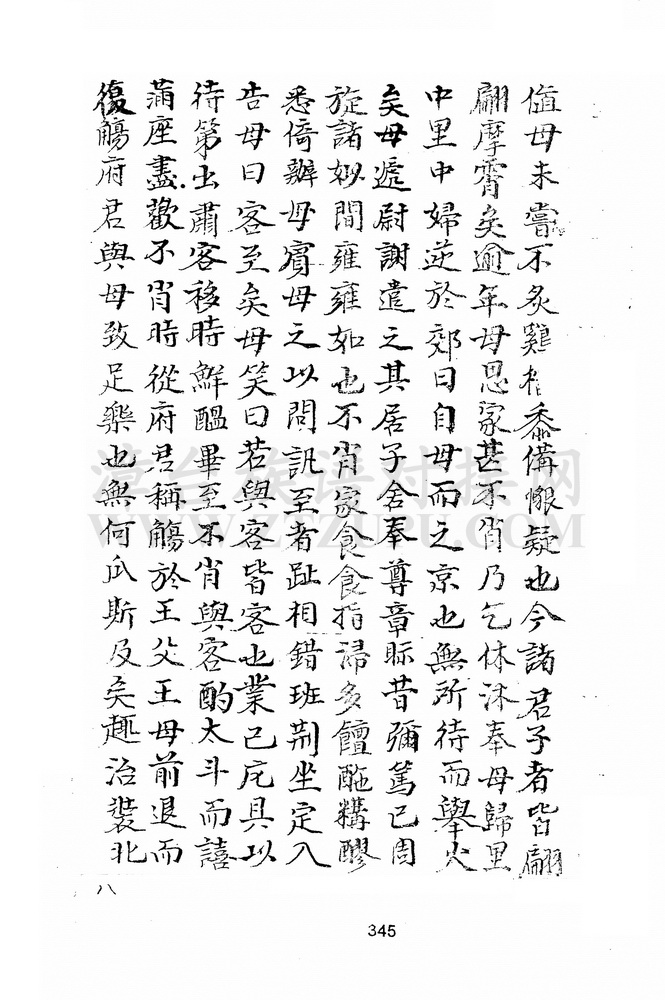 值母未嘗不炙雞作黍備懷疑也今諸君子者皆翩
翩摩霄矣逾年母思家甚不肖乃乞休沐奉母歸里
中里中婦逆於郊曰自母而之京也無所待而舉火
矣母遜尉謝遣之其居子舍奉尊章眎昔彌篤已周
旋諸妯間雍雍如也不肖家食食指滯多饘酏糒醪
悉倚辦母賓母之以問訊至者趾相錯班荆坐定入
告母曰客至矣母笑曰若與客皆客也業已庀具以
待第出肅客移時鮮醞畢至不肖與客酌太斗而譆
滿座盡歡不肖時從府君稱觴於王父王母前退而
復觴府君與母致足樂也無何瓜斯及矣趣治裝北
八
345
淳台族谱对接网
WWW.ZTZUPU.COM